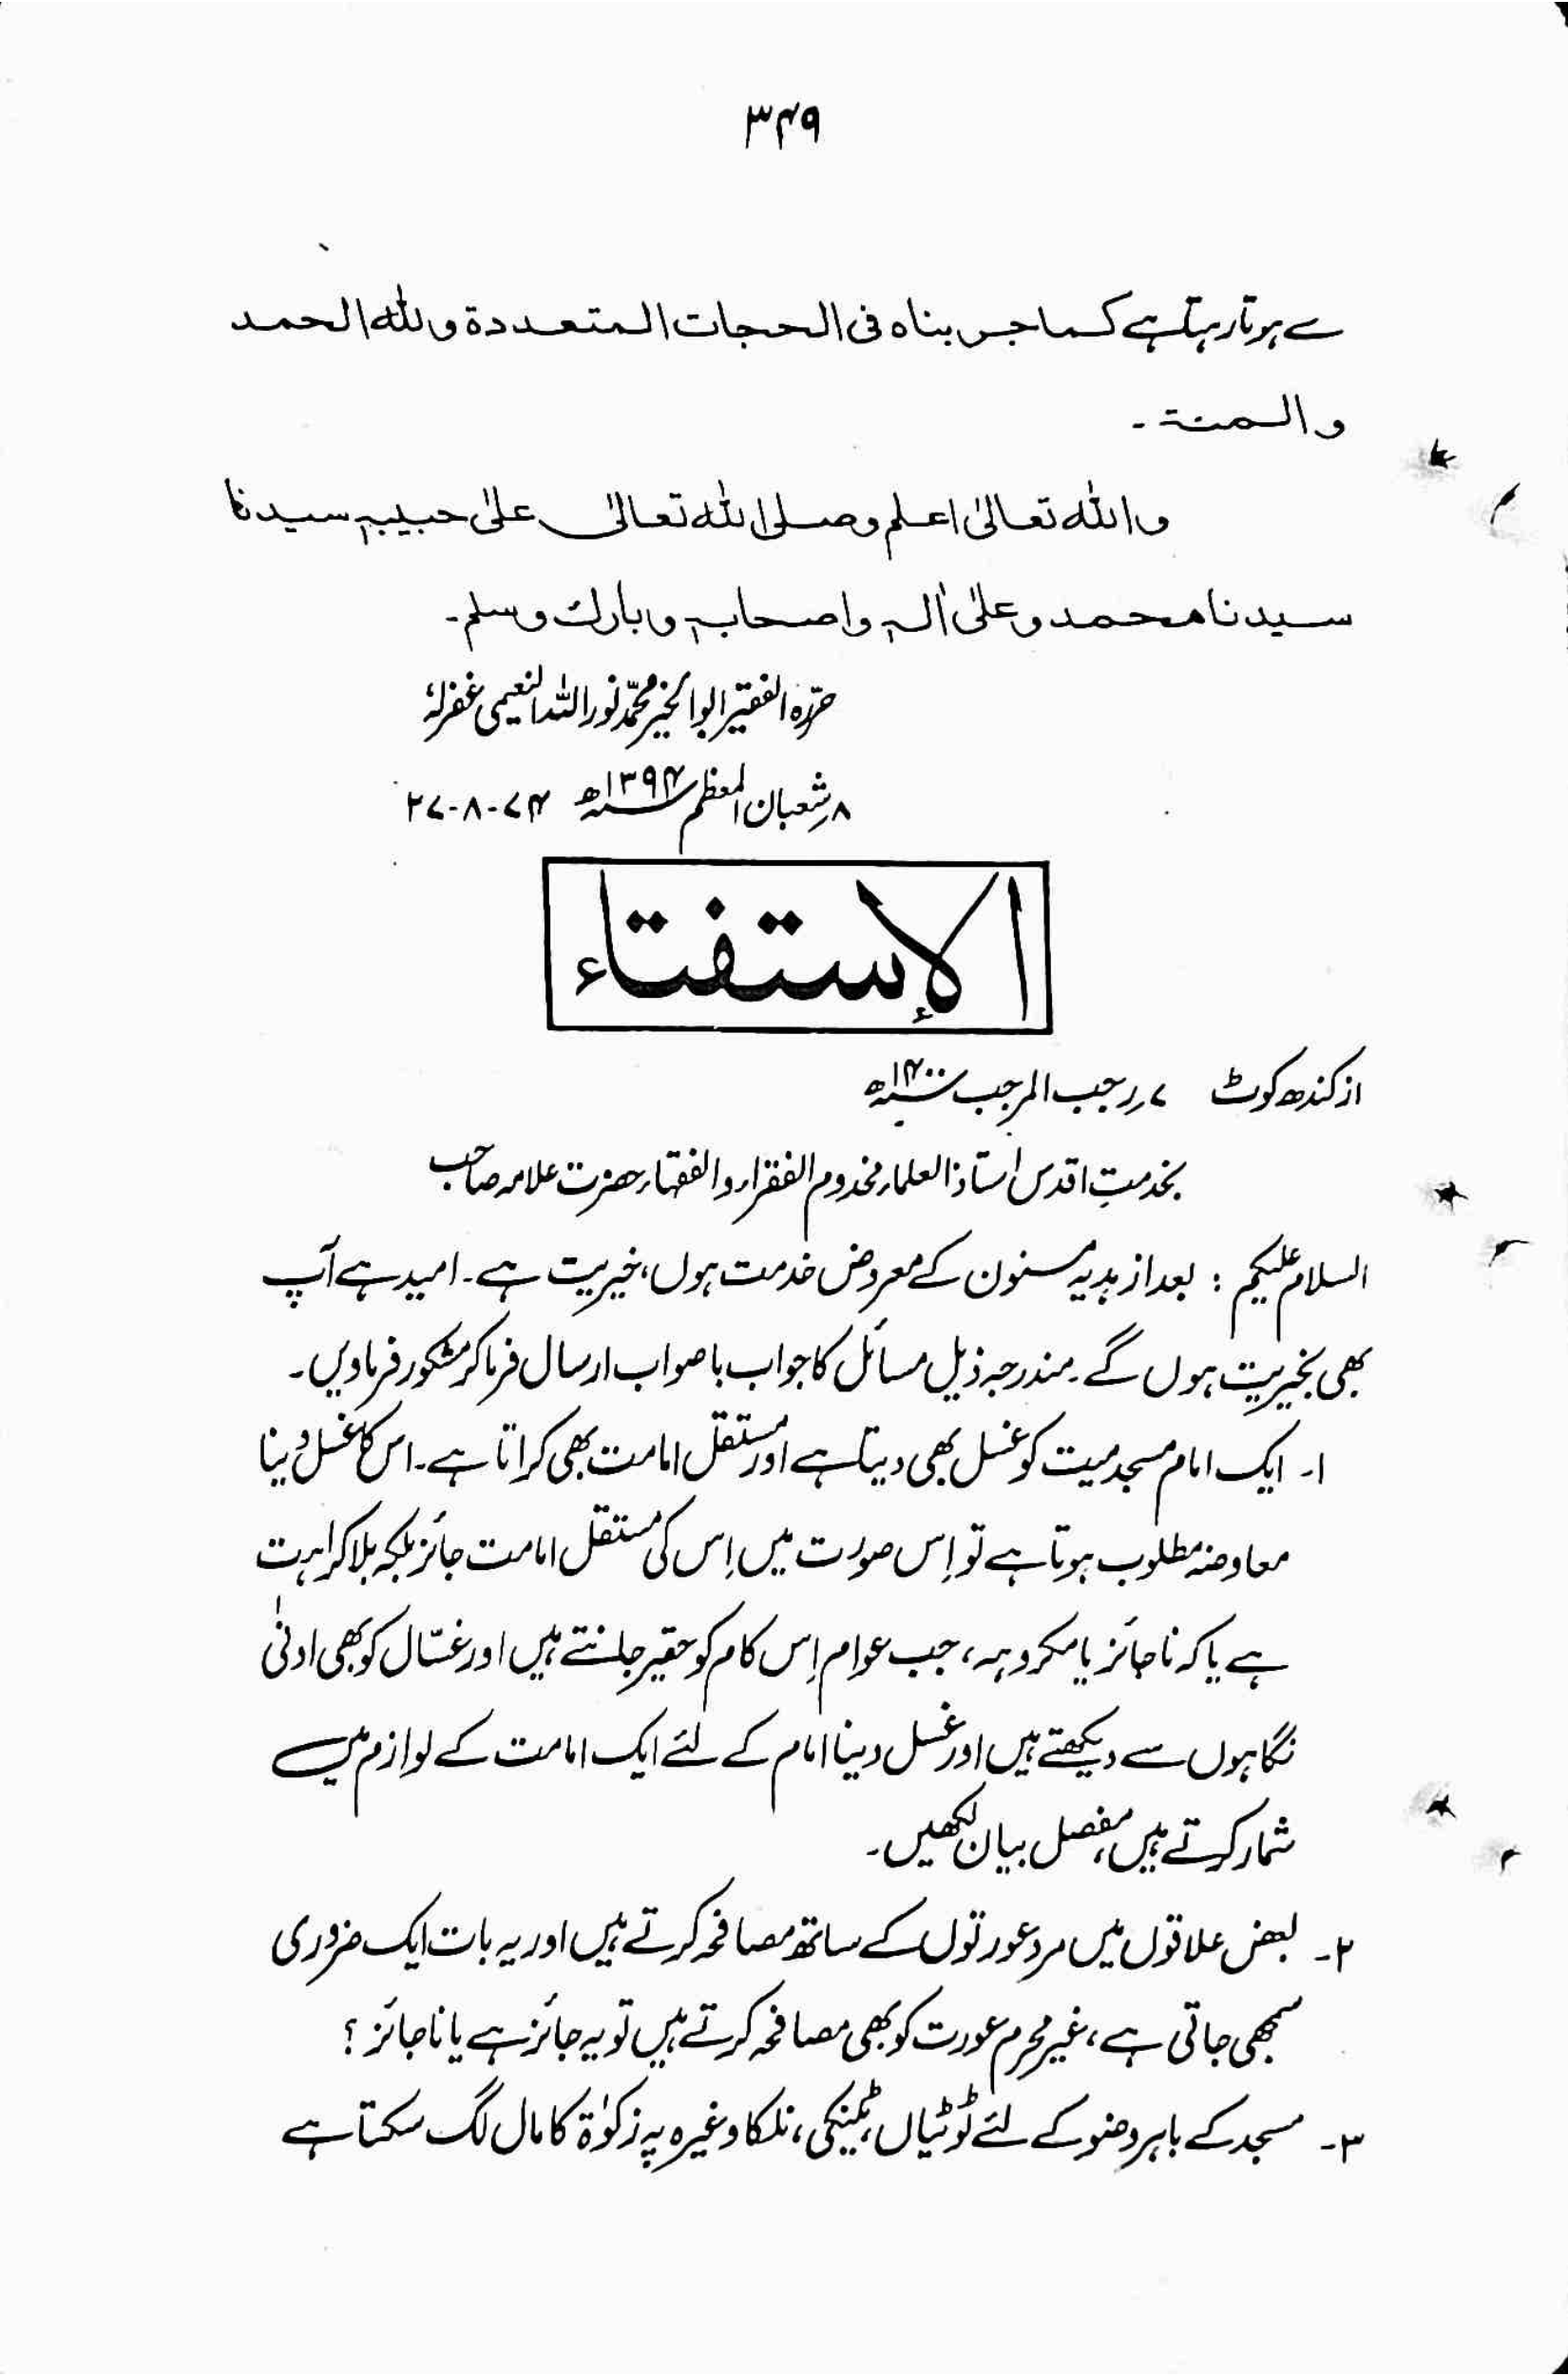 ۳۴۹
سے ہوتا رہتا ہے کما جربناہ فی الحجات المتعددة وللہ الحمد
والمنة ۔
واللہ تعالیٰ اعلم وصلی اللہ تعالیٰ علیٰ حبیبہ سیدنا
سیدنا محمد وعلیٰ اٰلہ واصحابہ وبارك وسلم۔
حرّرہ الفقیر ابوالخیر محمّد نور اللہ النعیمی غفرلہٗ
۸ شعبان المعظم ۱۳۹۴ھ ۲۷-۸-۷۴
الإستفتاء
از کندھ کوٹ ۷ رجب المرجب ۱۴۰۰ھ
بخدمتِ اقدس استاذ العلماء مخدوم الفقراء والفقہاء حضرت علامہ صاحب
السلام علیکم : بعد از ہدیہ مسنون کے معروض خدمت ہوں، خیریت ہے۔ امید ہے آپ
بھی بخیریت ہوں گے۔ مندرجہ ذیل مسائل کا جواب باصواب ارسال فرما کر مشکور فرماویں۔
۱۔ ایک امام مسجد میت کو غسل بھی دیتا ہے اور مستقل امامت بھی کراتا ہے۔ اس کا غسل دینا
معاوضہ مطلوب ہوتا ہے تو اِس صورت میں اِس کی مستقل امامت جائز بلکہ بلا کراہت
ہے یا کہ ناجائز یا مکروہہ، جب عوام اِس کام کو حقیر جانتے ہیں اور غسّال کو بھی ادنیٰ
نگاہوں سے دیکھتے ہیں اور غسل دینا امام کے لئے ایک امامت کے لوازم میں
شمار کرتے ہیں، مفصل بیان لکھیں۔
۲۔ بعض علاقوں میں مرد عورتوں کے ساتھ مصافحہ کرتے ہیں اور یہ بات ایک ضروری
سمجھی جاتی ہے، غیر محرم عورت کو بھی مصافحہ کرتے ہیں تو یہ جائز ہے یا ناجائز ؟
۳۔ مسجد کے باہر وضو کے لئے ٹوٹیاں، ٹینکی، نلکا وغیرہ پہ زکوٰة کا مال لگ سکتا ہے